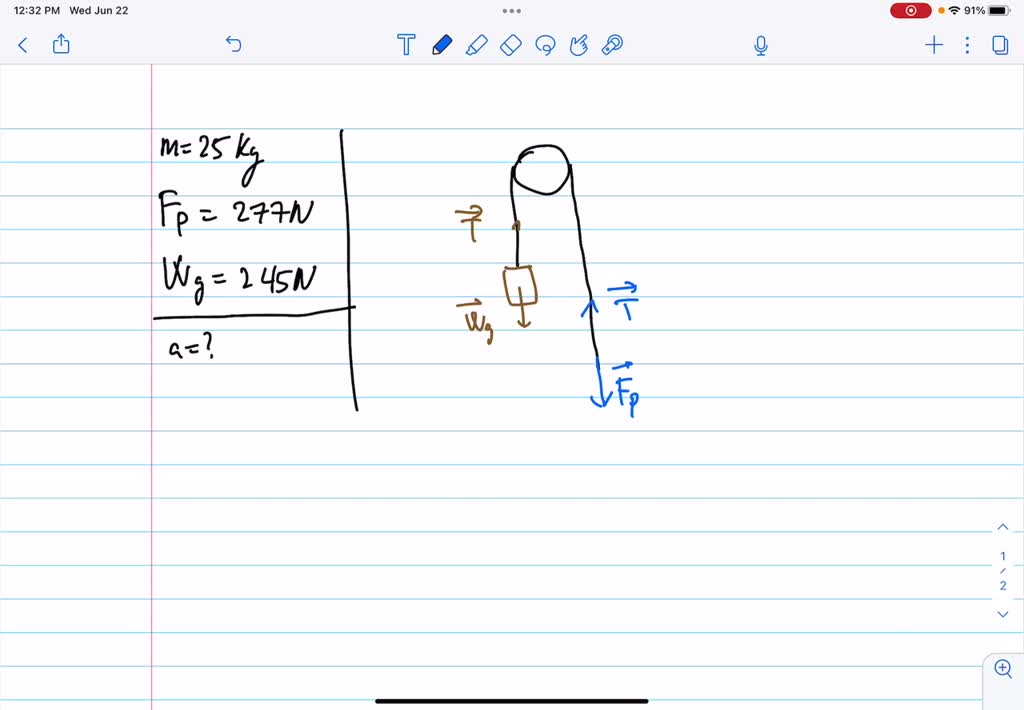 12:32 PM Wed Jun 22
91%
m=25 Kg
Fp = 277N
Wg = 245N
a=?
T
Wg
T
Fp
1
/
2